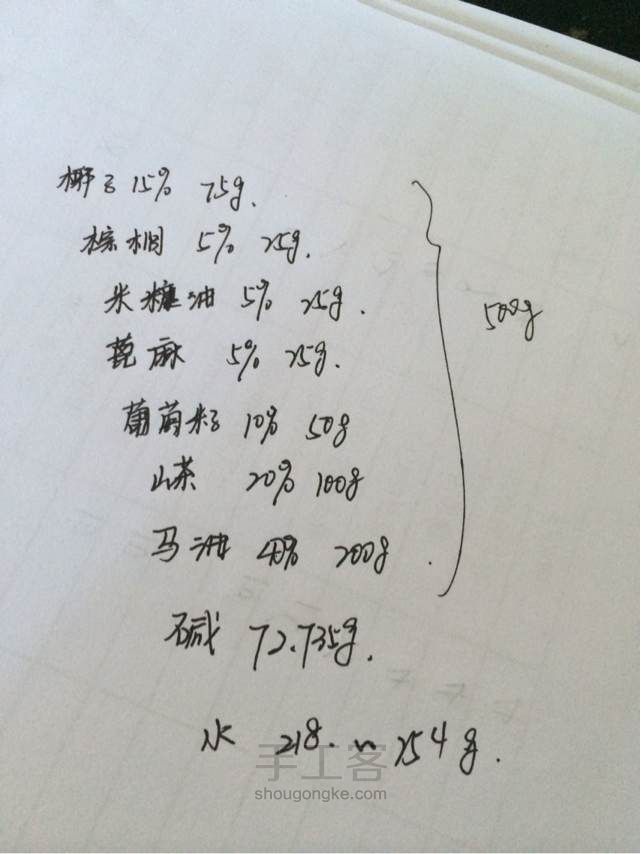 椰子 15% 75g.
棕榈 5% 25g.
米糠油 5% 25g.
蓖麻 5% 25g.
500g
葡萄籽 10% 50g
山茶 20% 100g
马油 40% 200g.
碱 72.735g.
水 218. ~ 254g.
手工客
shougongke.com